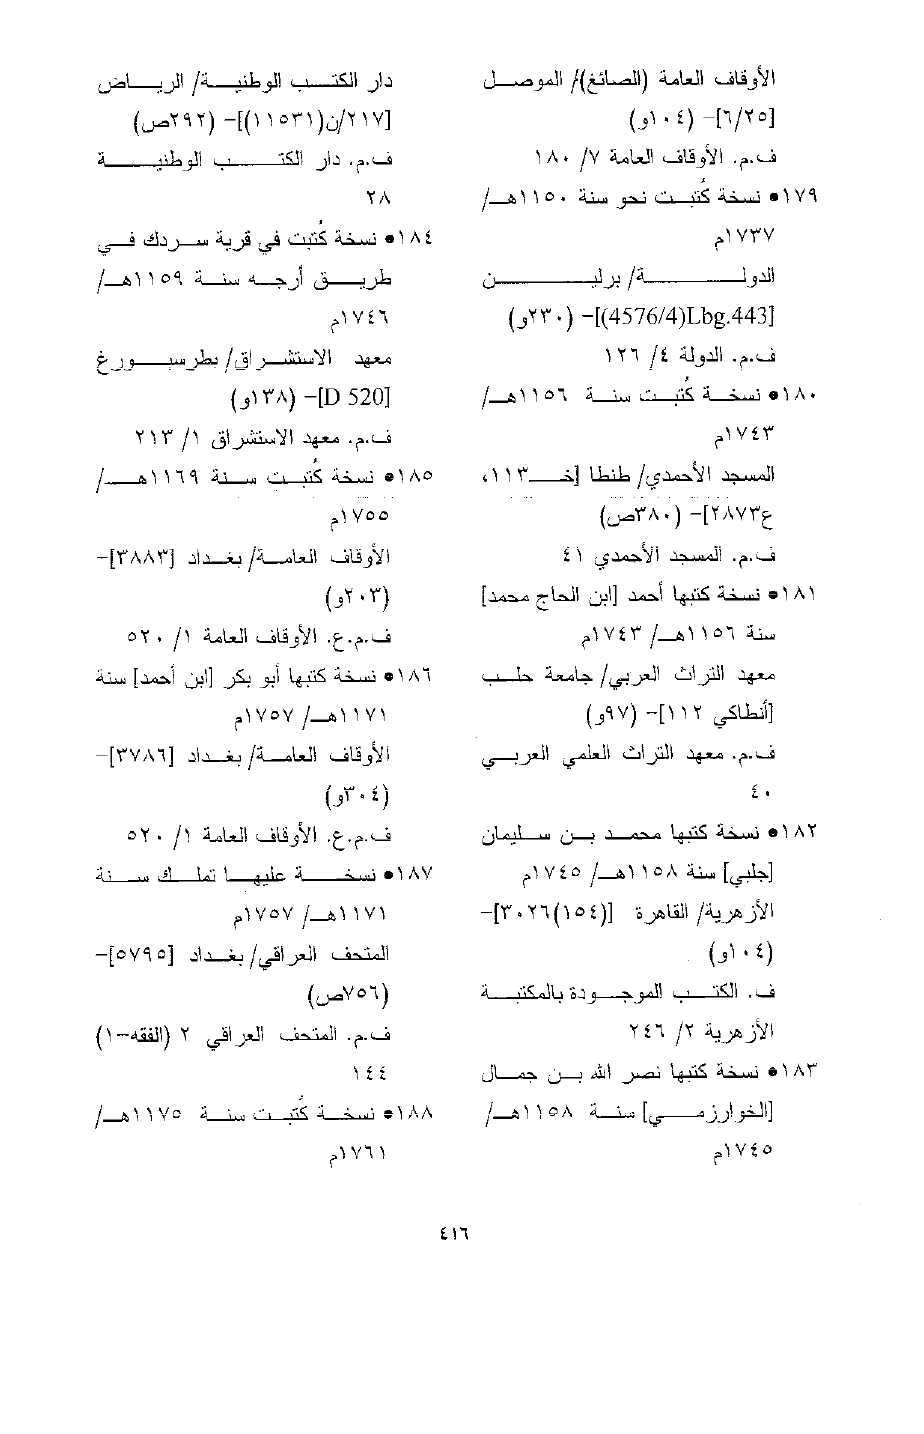 الأوقاف العامة (الصائغ)/ الموصل
[٦/٢٥]- (١٠٤و)
ف.م. الأوقاف العامة ٧/ ١٨٠
١٧٩• نسخة كُتبت نحو سنة ١١٥٠هـ/
١٧٣٧م
الدولة/ برلين
[Lbg.443(4576/4)]- (٢٣٠و)
ف.م. الدولة ٤/ ١٢٦
١٨٠• نسخة كُتبت سنة ١١٥٦هـ/
١٧٤٣م
المسجد الأحمدي/ طنطا [خـ١١٣،
ع٢٨٧٣]- (٣٨٠ص)
ف.م. المسجد الأحمدي ٤١
١٨١• نسخة كتبها أحمد [ابن الحاج محمد]
سنة ١١٥٦هـ/ ١٧٤٣م
معهد التراث العربي/ جامعة حلب
[أنطاكي ١١٢]- (٩٧و)
ف.م. معهد التراث العلمي العربي
٤٠
١٨٢• نسخة كتبها محمد بن سليمان
[جلبي] سنة ١١٥٨هـ/ ١٧٤٥م
الأزهرية/ القاهرة [(١٥٤)٣٠٢٦]-
(١٠٤و)
ف. الكتب الموجودة بالمكتبة
الأزهرية ٢/ ٢٤٦
١٨٣• نسخة كتبها نصر الله بن جمال
[الخوارزمي] سنة ١١٥٨هـ/
١٧٤٥م
دار الكتب الوطنية/ الرياض
[٢١٧/ن(١١٥٣١)]- (٢٩٢ص)
ف.م. دار الكتب الوطنية
٢٨
١٨٤• نسخة كُتبت في قرية سردك في
طريق أرجه سنة ١١٥٩هـ/
١٧٤٦م
معهد الاستشراق/ بطرسبورغ
[D 520]- (١٣٨و)
ف.م. معهد الاستشراق ١/ ٢١٣
١٨٥• نسخة كُتبت سنة ١١٦٩هـ/
١٧٥٥م
الأوقاف العامة/ بغداد [٣٨٨٣]-
(٢٠٣و)
ف.م.ع. الأوقاف العامة ١/ ٥٢٠
١٨٦• نسخة كتبها أبو بكر [ابن أحمد] سنة
١١٧١هـ/ ١٧٥٧م
الأوقاف العامة/ بغداد [٣٧٨٦]-
(٣٠٤و)
ف.م.ع. الأوقاف العامة ١/ ٥٢٠
١٨٧• نسخة عليها تملك سنة
١١٧١هـ/ ١٧٥٧م
المتحف العراقي/ بغداد [٥٧٩٥]-
(٧٥٦ص)
ف.م. المتحف العراقي ٢ (الفقه-١)
١٤٤
١٨٨• نسخة كُتبت سنة ١١٧٥هـ/
١٧٦١م
٤١٦